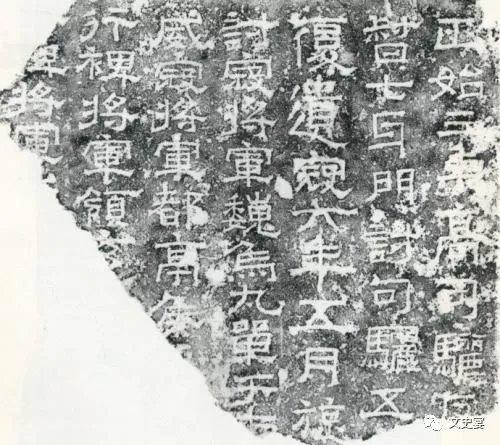 正始三年高句驪反
督七牙門討句驪五
復遺寇六年五月旋
討寇將軍魏烏丸單于
威寇將軍都亭侯
行裨將軍領
裨將軍
文史宴